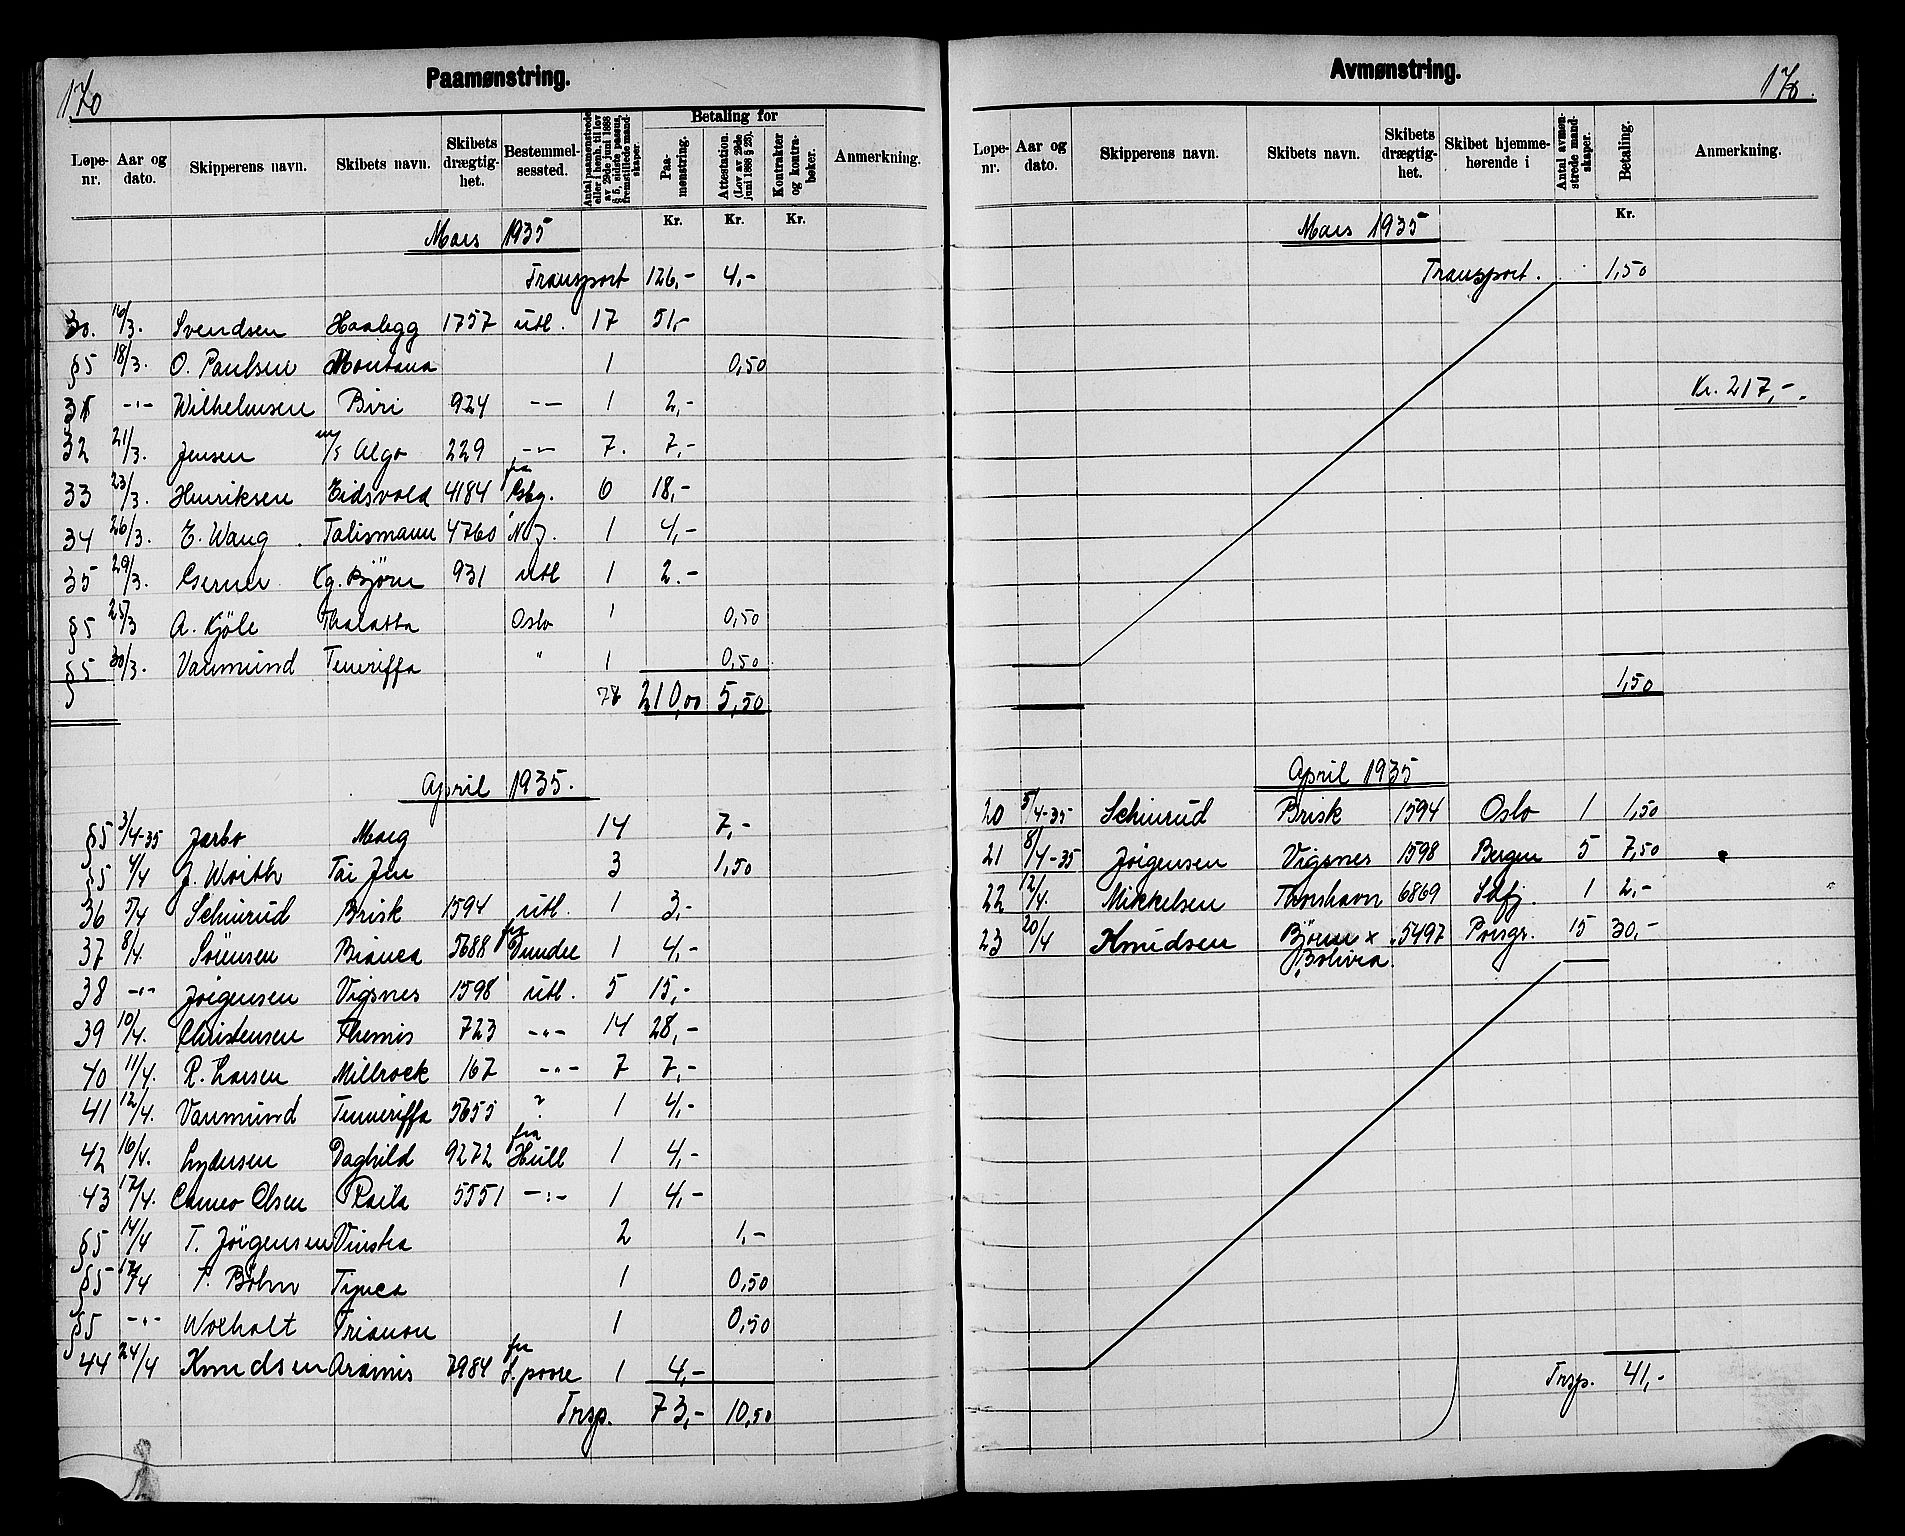 170
Paamønstring.
Løpe-nr. Aar og dato. Skipperens navn. Skibets navn. Skibets drægtig-het. Bestemmel-sessted. Antal paamønstrede eller i henh. til lov av 29de juni 1888 § 5, sidste passus, fremstillede mand-skaper. Betaling for Paa-mønstring. Attestation. (Lov av 29de juni 1888 § 23). Kontrakter og kontra-bøker. Anmerkning.
Kr. Kr. Kr.
Mars 1935
Transport 126,- 4,-
30. 16/3. Svendsen Haalegg 1757 utl. 17 51,-
§5 18/3. O. Paulsen Montana 1 0,50
31 -"- Wilhelmsen Biri 924 -"- 1 2,-
32 21/3. Jensen m/s Algo 229 -"- 7. 7,-
33 23/3. Henriksen Eidsvold 4184 fra Gbg. 6 18,-
34 26/3. E. Wang Talismann 4760 1 4,-
35 29/3. Gerner Kg. Bjørn 931 utl 1 2.-
§5 25/3 A. Kjöle Thalatta Oslo 1 0,50
§5 30/3. Varmund Teneriffa " 1 0,50
78 210,00 5,50
April 1935.
§5 3/4-35 Jarbo 14 7,-
§5 4/4 J. Woith Tai Jin 3 1,50
36 5/4 Schinrud Brisk 1594 utl. 1 3,-
37 8/4. Sörensen Bianca 5688 fra Dundee 1 4,-
38 -"- Jörgensen Vigsnes 1598 utl. 5 15,-
39 10/4. Christensen Themis 723 -"- 14 28,-
40 11/4. R. Larsen Millrock 167 -"- 7 7,-
41 12/4. Varmund Tenneriffa 5655 ? 1 4,-
42 16/4. Lydersen Daghild 9272 fra Hull 1 4,-
43 17/4. Olsen 5551 -"- 1 4,-
§5 14/4 T. Jörgensen Vinstra 2 1,-
§5 17/4 T. Böhn Tijuca 1 0,50
§5 -"- Woxholt Trianon 1 0,50
44 24/4 Knudsen Aramis 7984 fra 1 4,-
Trsp. 73,- 10,50
Avmønstring.
170.
Løpe-nr. Aar og dato. Skipperens navn. Skibets navn. Skibets drægtig-het. Skibet hjemme-hørende i Antal avmøn-strede mand-skaper. Betaling. Anmerkning.
Kr.
Mars 1935
Transport. 1,50
Kr. 217,-.
1,50
April 1935
20 5/4-35 Schinrud Brisk 1594 Oslo 1 1,50
21 8/4-35 Jörgensen Vigsnes 1598 Bergen 5 7,50
22 12/4. Mikkelsen Thorshavn 6869 Sdfj. 1 2,-
23 20/4 Knudsen Björn x 5497 Porsgr. 15 30,-
Bolivia.
Trsp. 41,-